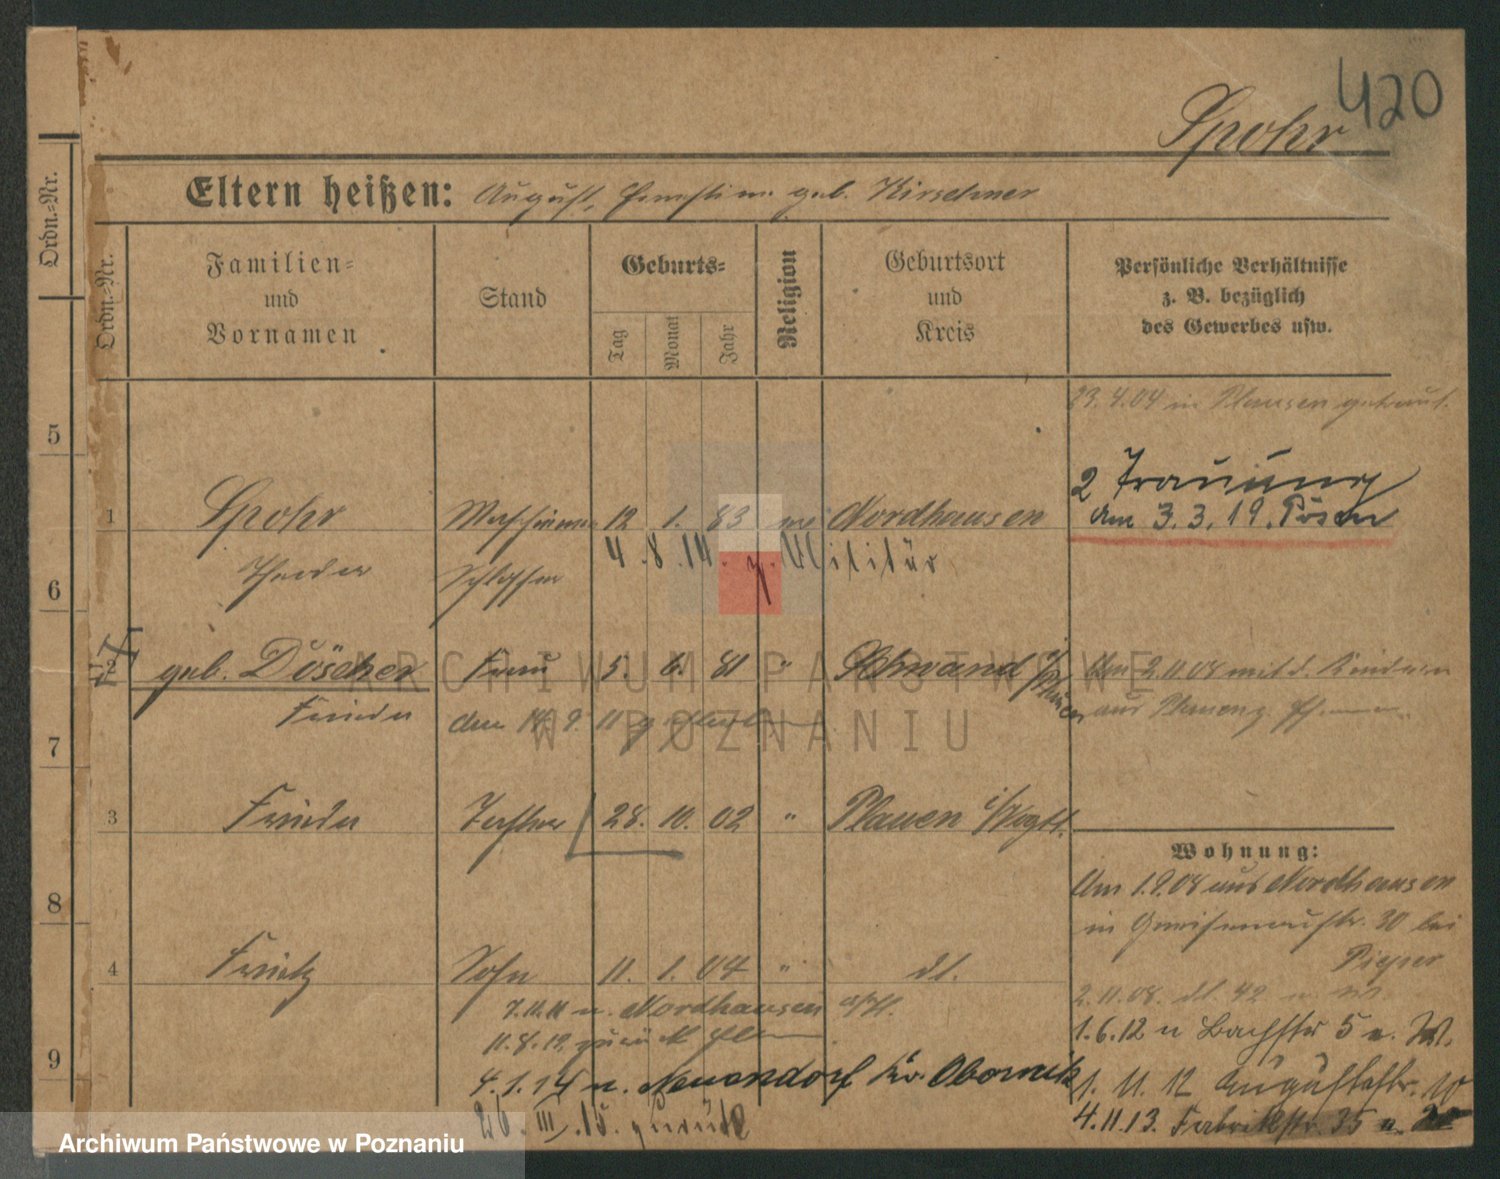 420
Spohr
Eltern heißen: August, geb. Kirschner
Ordn.-Nr.
Ordn.-Nr.
Familien- und Vornamen
Stand
Geburts-
Tag
Monat
Jahr
Religion
Geburtsort und Kreis
Persönliche Verhältnisse z. B. bezüglich des Gewerbes usw.
23.4.04 in Plauen getraut.
2 Trauung
am 3.3.19. Posen
5
1 Spohr 12 1. 83 Nordhausen
4.8.14. z. Militär
Schlosser
6
2 geb. Döscher Frau 5. 6. 81 " Schwand
Frieda
Am 2.11.08 mit d. Kindern
aus Plauen
den 14.9.11 gestorben
7
3 Frieda Tochter 28. 10. 02 " Plauen i/Vogtl.
Wohnung:
Am 1.9.08 aus Nordhausen
in Gneisenaustr. 30 bei
8
4 Fritz Sohn 11. 1. 04 " dt.
2.11.08. dt. 42
n. Nordhausen
11.8.12. zurück
1.6.12 n Bachstr 5
9
4.1.14 n. Neuendorf Kr. Obornik
1.11.12 Augustastr. 10
26.III.15. zurück
4.11.13. Fabrikstr. 35
ARCHIWUM PAŃSTWOWE
W POZNANIU
Archiwum Państwowe w Poznaniu